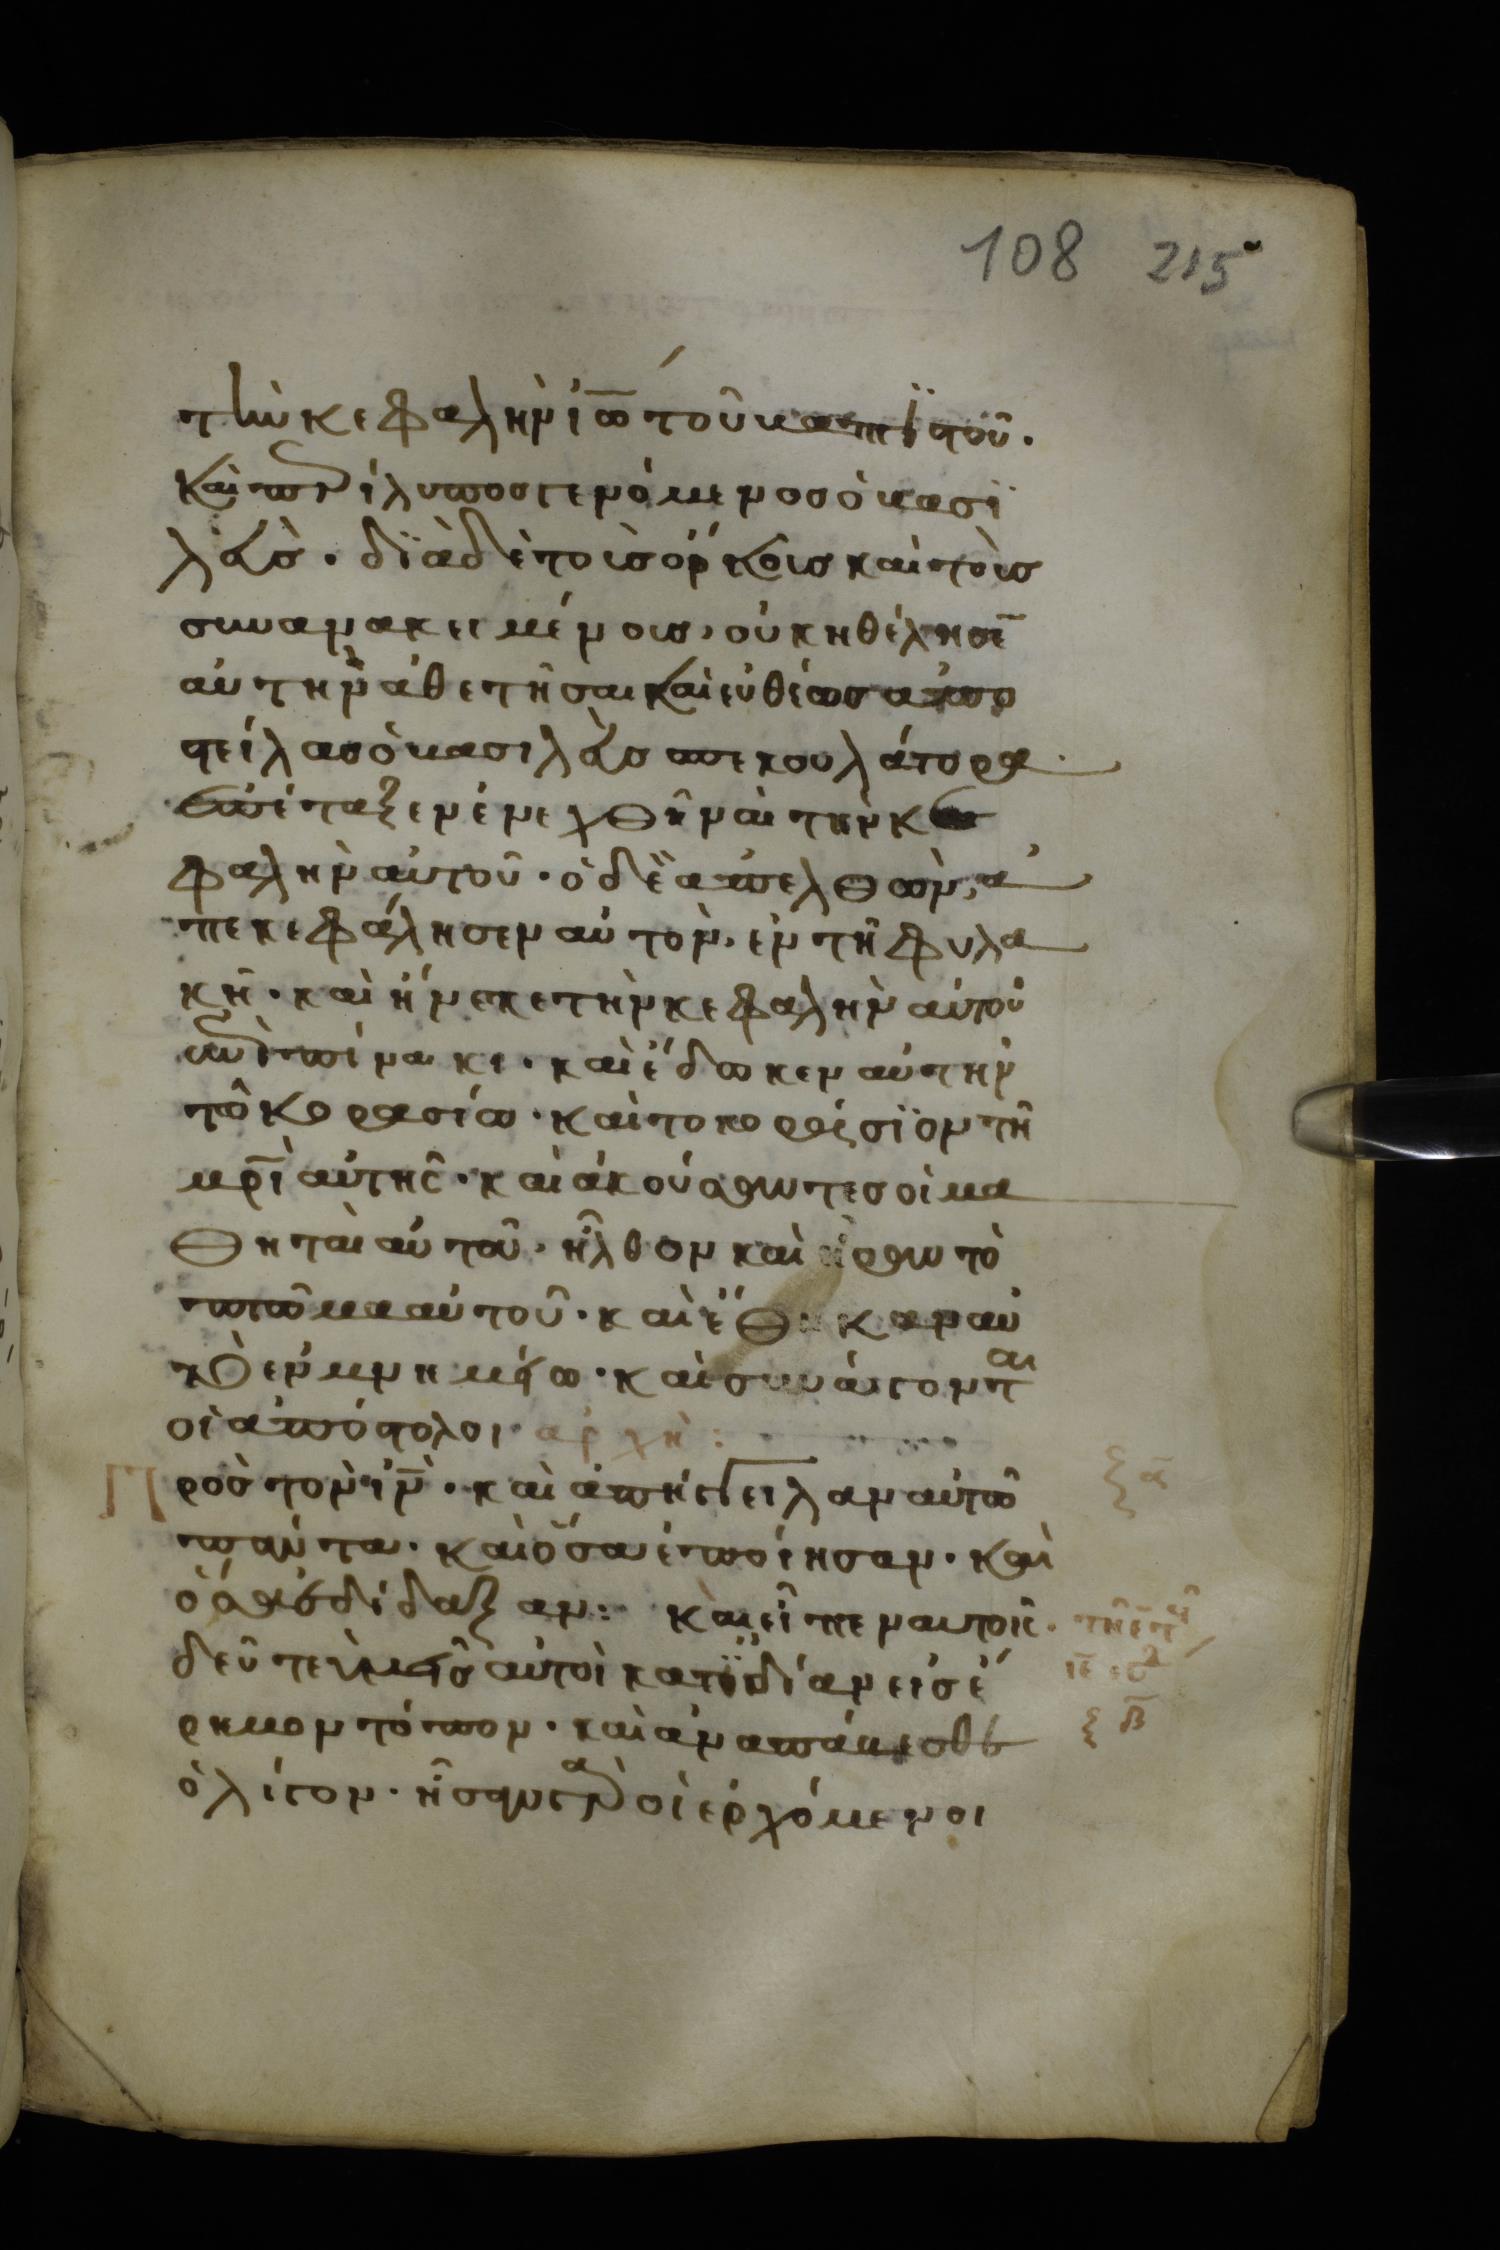 108 215
τὴν κεφαλὴν ἰω̅ τοῦ βαπτϊστοῦ·
καὶ περίλυπος γενόμενος ὁ βασϊ
λεὺς· δϊὰ δὲ τοὺς ὅρκους καὶ τοὺς
συνανακειμένους, οὐκ ἠθέλησε̅
αὐτὴν ἀθετῆσαι καὶ εὐθέως ἀπο
στείλας ὁ βασιλεὺς σπεκουλάτορα
ἐπέταξεν ἐνεχθῆναι τὴν κε
φαλὴν αὐτοῦ· ὁ δὲ ἀπελθὼν, ἀ
πεκεφάλησεν αὐτὸν, ἐν τῆ φυλα
κῆ· καὶ ἤνεκε τὴν κεφαλὴν αὐτοῦ
ἐπὶ πίνακι· καὶ ἔδωκεν αὐτὴν
τῶ κορασίω· καὶ το κοράσϊον τῆ
μρ̅ὶ αὐτῆς· καὶ ἀκούσαντες οἱ μα
θηταὶ αὐτοῦ· ἦλθον καὶ ἦραν τὸ
πτῶμα αὐτοῦ· καὶ ἔθηκαν αὐ
τὸ ἐν μνημείω· καὶ συνάγονται
οἱ ἀπόστολοι· ἀρχὴ:
Πρὸς τὸν ἰν̅· καὶ ἀπήγγειλαν αὐτῶ
πάντα· καὶ ὅσα ἐποίησαν· καὶ
ὅσα ἐδίδαξαν: καὶ εἶπεν αὐτοῖς·
δεῦτε ὑμεῖς αὐτοὶ κατϊδίαν εἰς ἔ
ρημον τόπον· καὶ ἀναπάυεσθε
ὀλίγον· ἦσαν γὰρ οἱ ἐρχόμενοι
ξα̅
ξβ̅